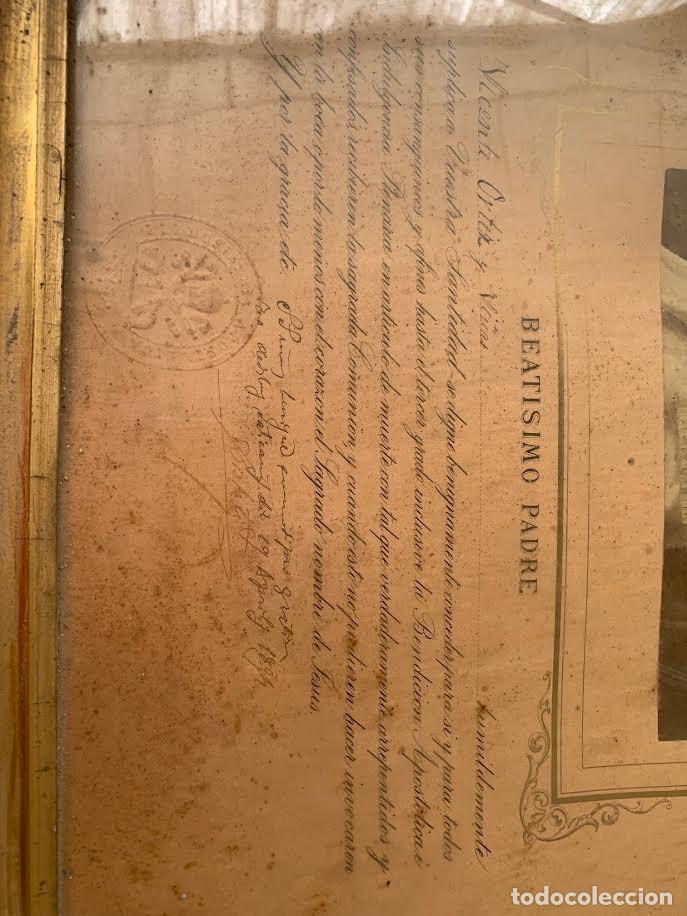 BEATISIMO PADRE
Vicente Ortiz y humildemente
suplica a Vuestra Santidad se digne benignamente conceder para si y para todos
sus consanguineos y afines hasta el tercer grado inclusive la Bendicion Apostolica é
Indulgencia Plenaria en articulo de muerte con tal que verdaderamente arrepentidos y
confesados recibieren la sagrada Comunion, y cuando esto no pudieren hacer invocaren
con la boca o por lo menos con el corazon el Sagrado nombre de Jesus.
Y por la gracia de
29 1894
todocoleccion